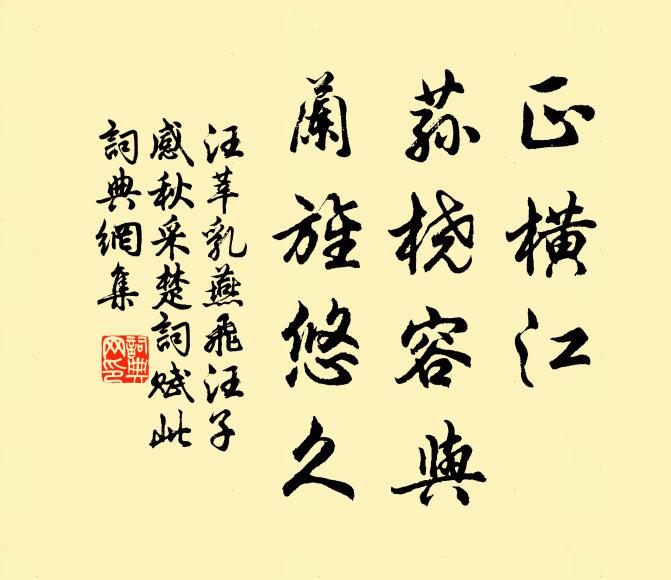 正橫江
荪桡容與
蘭旌悠久
汪莘乳燕飛汪子
感秋采楚詞賦此
詞典網集
詞典網印